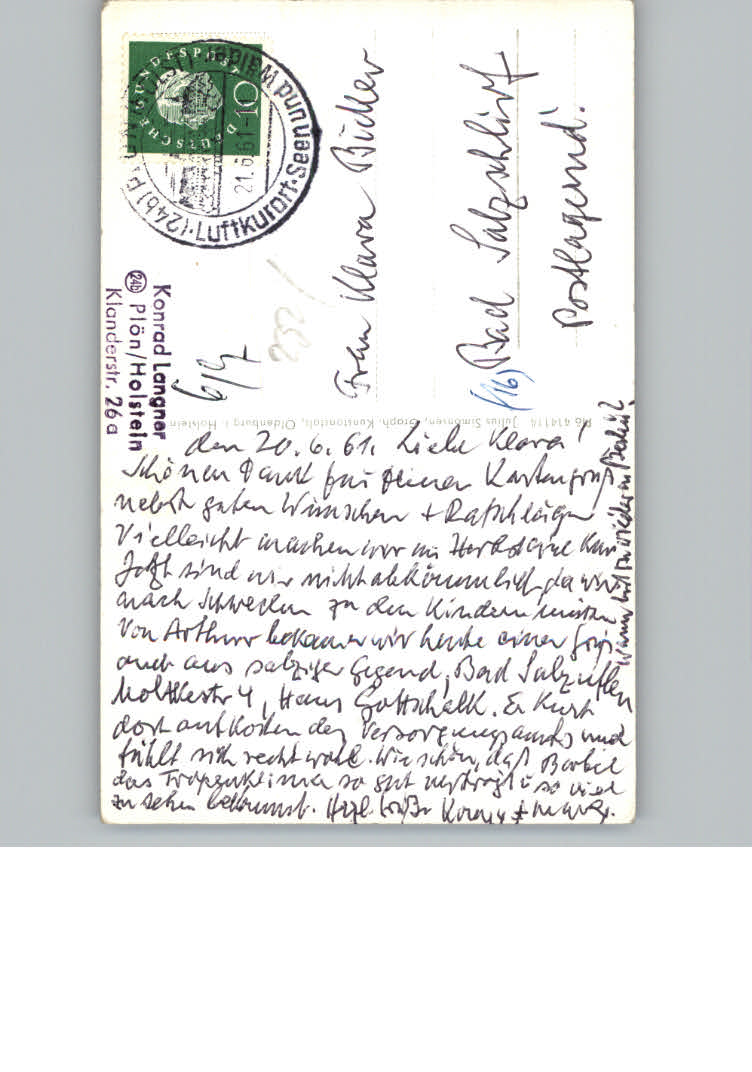 den 20.6.61. Liebe Klara!
Schönen Dank für Deinen Kartengruß
nebst guten Wünschen + Ratschlägen
Vielleicht machen wir im Herbst eine Kur
Jetzt sind wir nicht abkömmlich, da wir
nach Schweden zu den Kindern müssen
Von Arthur bekamen wir heute einen Gruß
auch aus salziger Gegend, Bad Salzuflen
Moltkestr 4, Haus Gottschalk. Er kurt
dort auf Kosten des Versorgungsamts und
fühlt sich recht wohl. Wie schön, daß Bärbel
das Tropenklima so gut verträgt u so viel
zu sehen bekommt. Herzl. Grüße Konrad +
Wann bist Du wieder in Berlin?
Frau Klara Bidler
(16) Bad Salzschlirf
Postlagernd.
6/7
252
Konrad Langner
24b Plön/Holstein
Klanderstr. 26a
DEUTSCHE BUNDESPOST
10
(24b) PLÖN (HOLST)
Luftkurort · Seen und Wälder
21.6.61-10
Plö 414114 Julius Simonsen, Graph. Kunstanstalt, Oldenburg i. Holstein